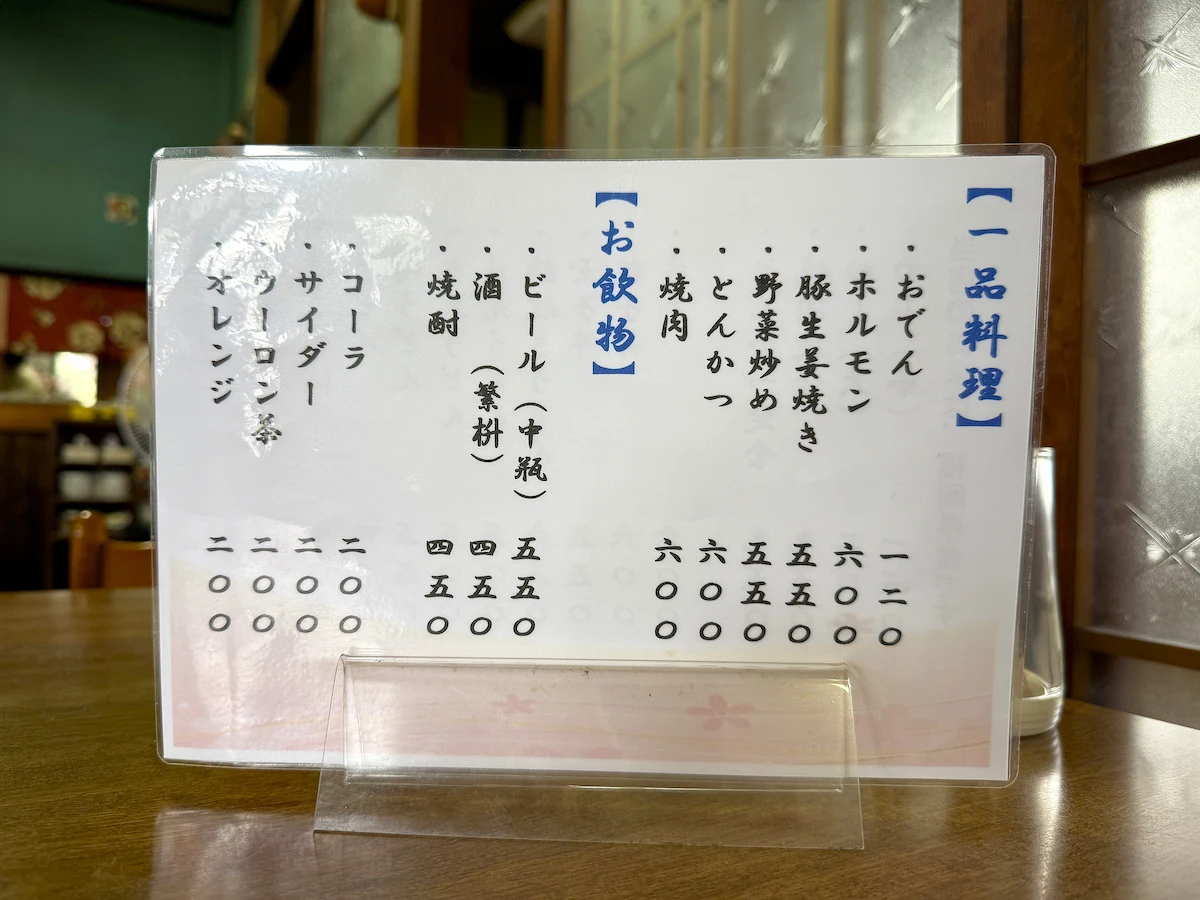 【一品料理】
・おでん 一二〇
・ホルモン 六〇〇
・豚生姜焼き 五五〇
・野菜炒め 五五〇
・とんかつ 六〇〇
・焼肉 六〇〇
【お飲物】
・ビール（中瓶） 五五〇
・酒（繁桝） 四五〇
・焼酎 四五〇
・コーラ 二〇〇
・サイダー 二〇〇
・ウーロン茶 二〇〇
・オレンジ 二〇〇